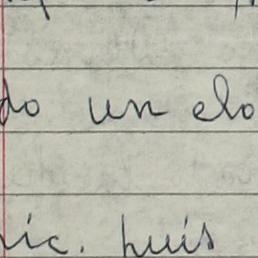 do un elo
ic. puis